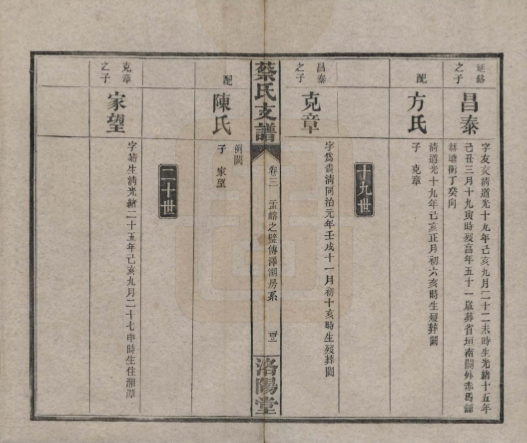 延鎔
之子
昌泰
字友文清道光十九年己亥九月二十二未時生光緒十五年
己丑三月十九寅時歿享年五十一歲葬省垣南關外赤馬鋪
塘衝丁癸向
配
方氏
清道光十九年己亥正月初六亥時生歿葬闕
子 克章
十九世
昌泰
之子
克章
字為
清同治元年壬戌十一月初十亥時生歿葬闕
蔡氏支譜
卷三
孟鎔之
傳澤潤房系
洛陽堂
配
陳氏
例闕
子 家望
二十世
克章
之子
家望
字菊生清光緒二十五年己亥九月二十七申時生住湘潭